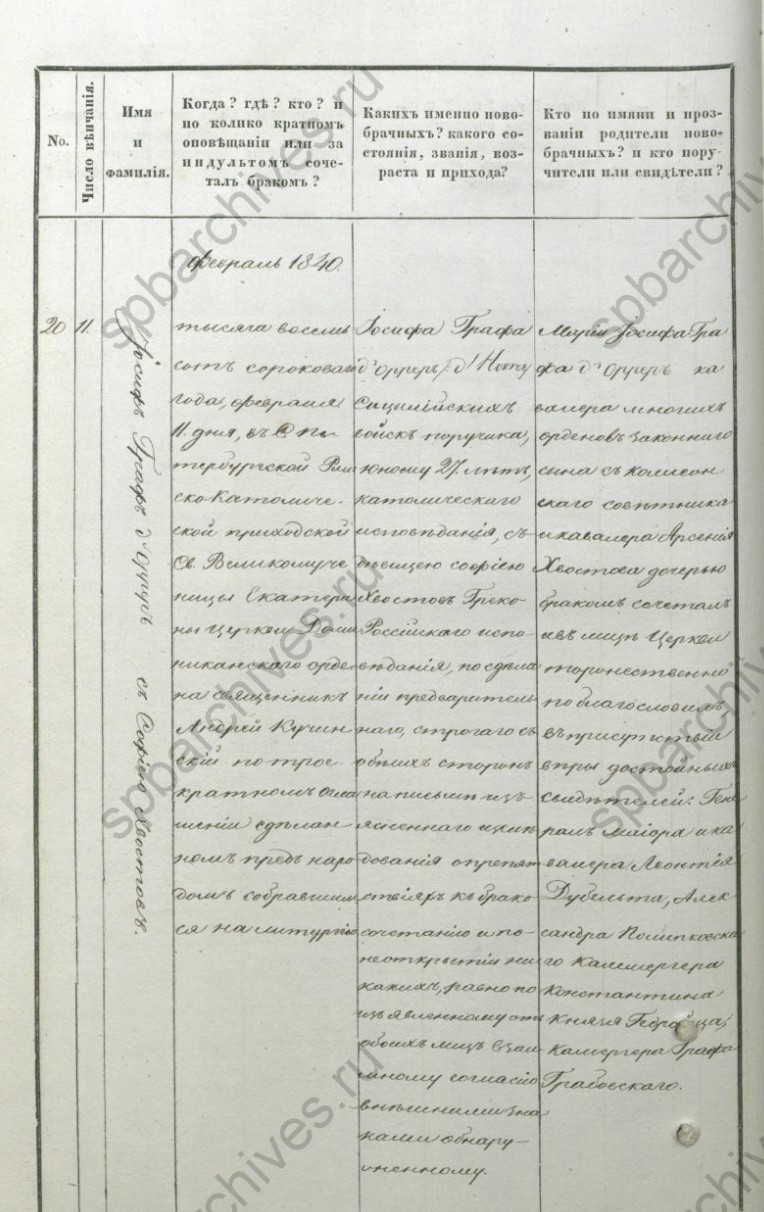 No.
Число вѣнчанія.
Имя
и
фамилія.
Когда? гдѣ? кто? и
по колико кратномъ
оповѣщаніи или за
индультомъ соче-
талъ бракомъ?
Какихъ именно ново-
брачныхъ? какого со-
стоянія, званія, воз-
раста и прихода?
Кто по имяни и проз-
ваніи родители ново-
брачныхъ? и кто пору-
чители или свидѣтели?
Февраль 1840.
20
11.
Іосифъ Графъ д'Орреръ съ Софіею Хвостовъ.
тысяча восемь
сотъ сороковаго
года, февраля
11. дня, въ С. Пе-
тербургской Рим
ско-Католиче-
ской приходской
Св. Великомуче
ницы Екатери
ны Церкви Доми
никанскаго орде
на священникъ
Андрей Кучин
скій по трое-
кратномъ огла
шеніи сдѣлан
номъ предъ наро
домъ собравшим
ся на литургію
Іосифа Графа
д'Орреръ /:d'
Сицилійскихъ
войскъ поручика,
юношу 27. лѣтъ,
католическаго
исповѣданія, съ
дѣвицею Софіею
Хвостовъ Греко-
Россійскаго испо-
вѣданія, по сдѣла
ніи предваритель
наго, строгаго съ
обѣихъ сторонъ
на письмѣ изъ
ясненнаго
дованія о препят
ствіяхъ къ брако
сочетанію и по
неоткрытіи ни
какихъ, равно по
изъявленному отъ
обоихъ лицъ взаи
мному согласію
внѣшними зна
ками обнару-
женному.
Марія Іосифа Гра
фа д'Орреръ ка
валера многихъ
орденовъ законнаго
сына съ
скаго совѣтника
и кавалера Арсенія
Хвостова дочерью
бракомъ сочеталъ
и въ лицѣ Церкви
торжественно
поблагословилъ
въ присутствіи
вѣры достойныхъ
свидѣтелей: Гене
ралъ Маіора и ка
валера Леонтія
Дубельта, Алек-
сандра
го Каммергера
Константина
Князя
Камергера Графа
Грабовскаго.
spbarchives.ru
spbarchives.ru
spbarchives.ru
spbarchives.ru
spbarchives.ru